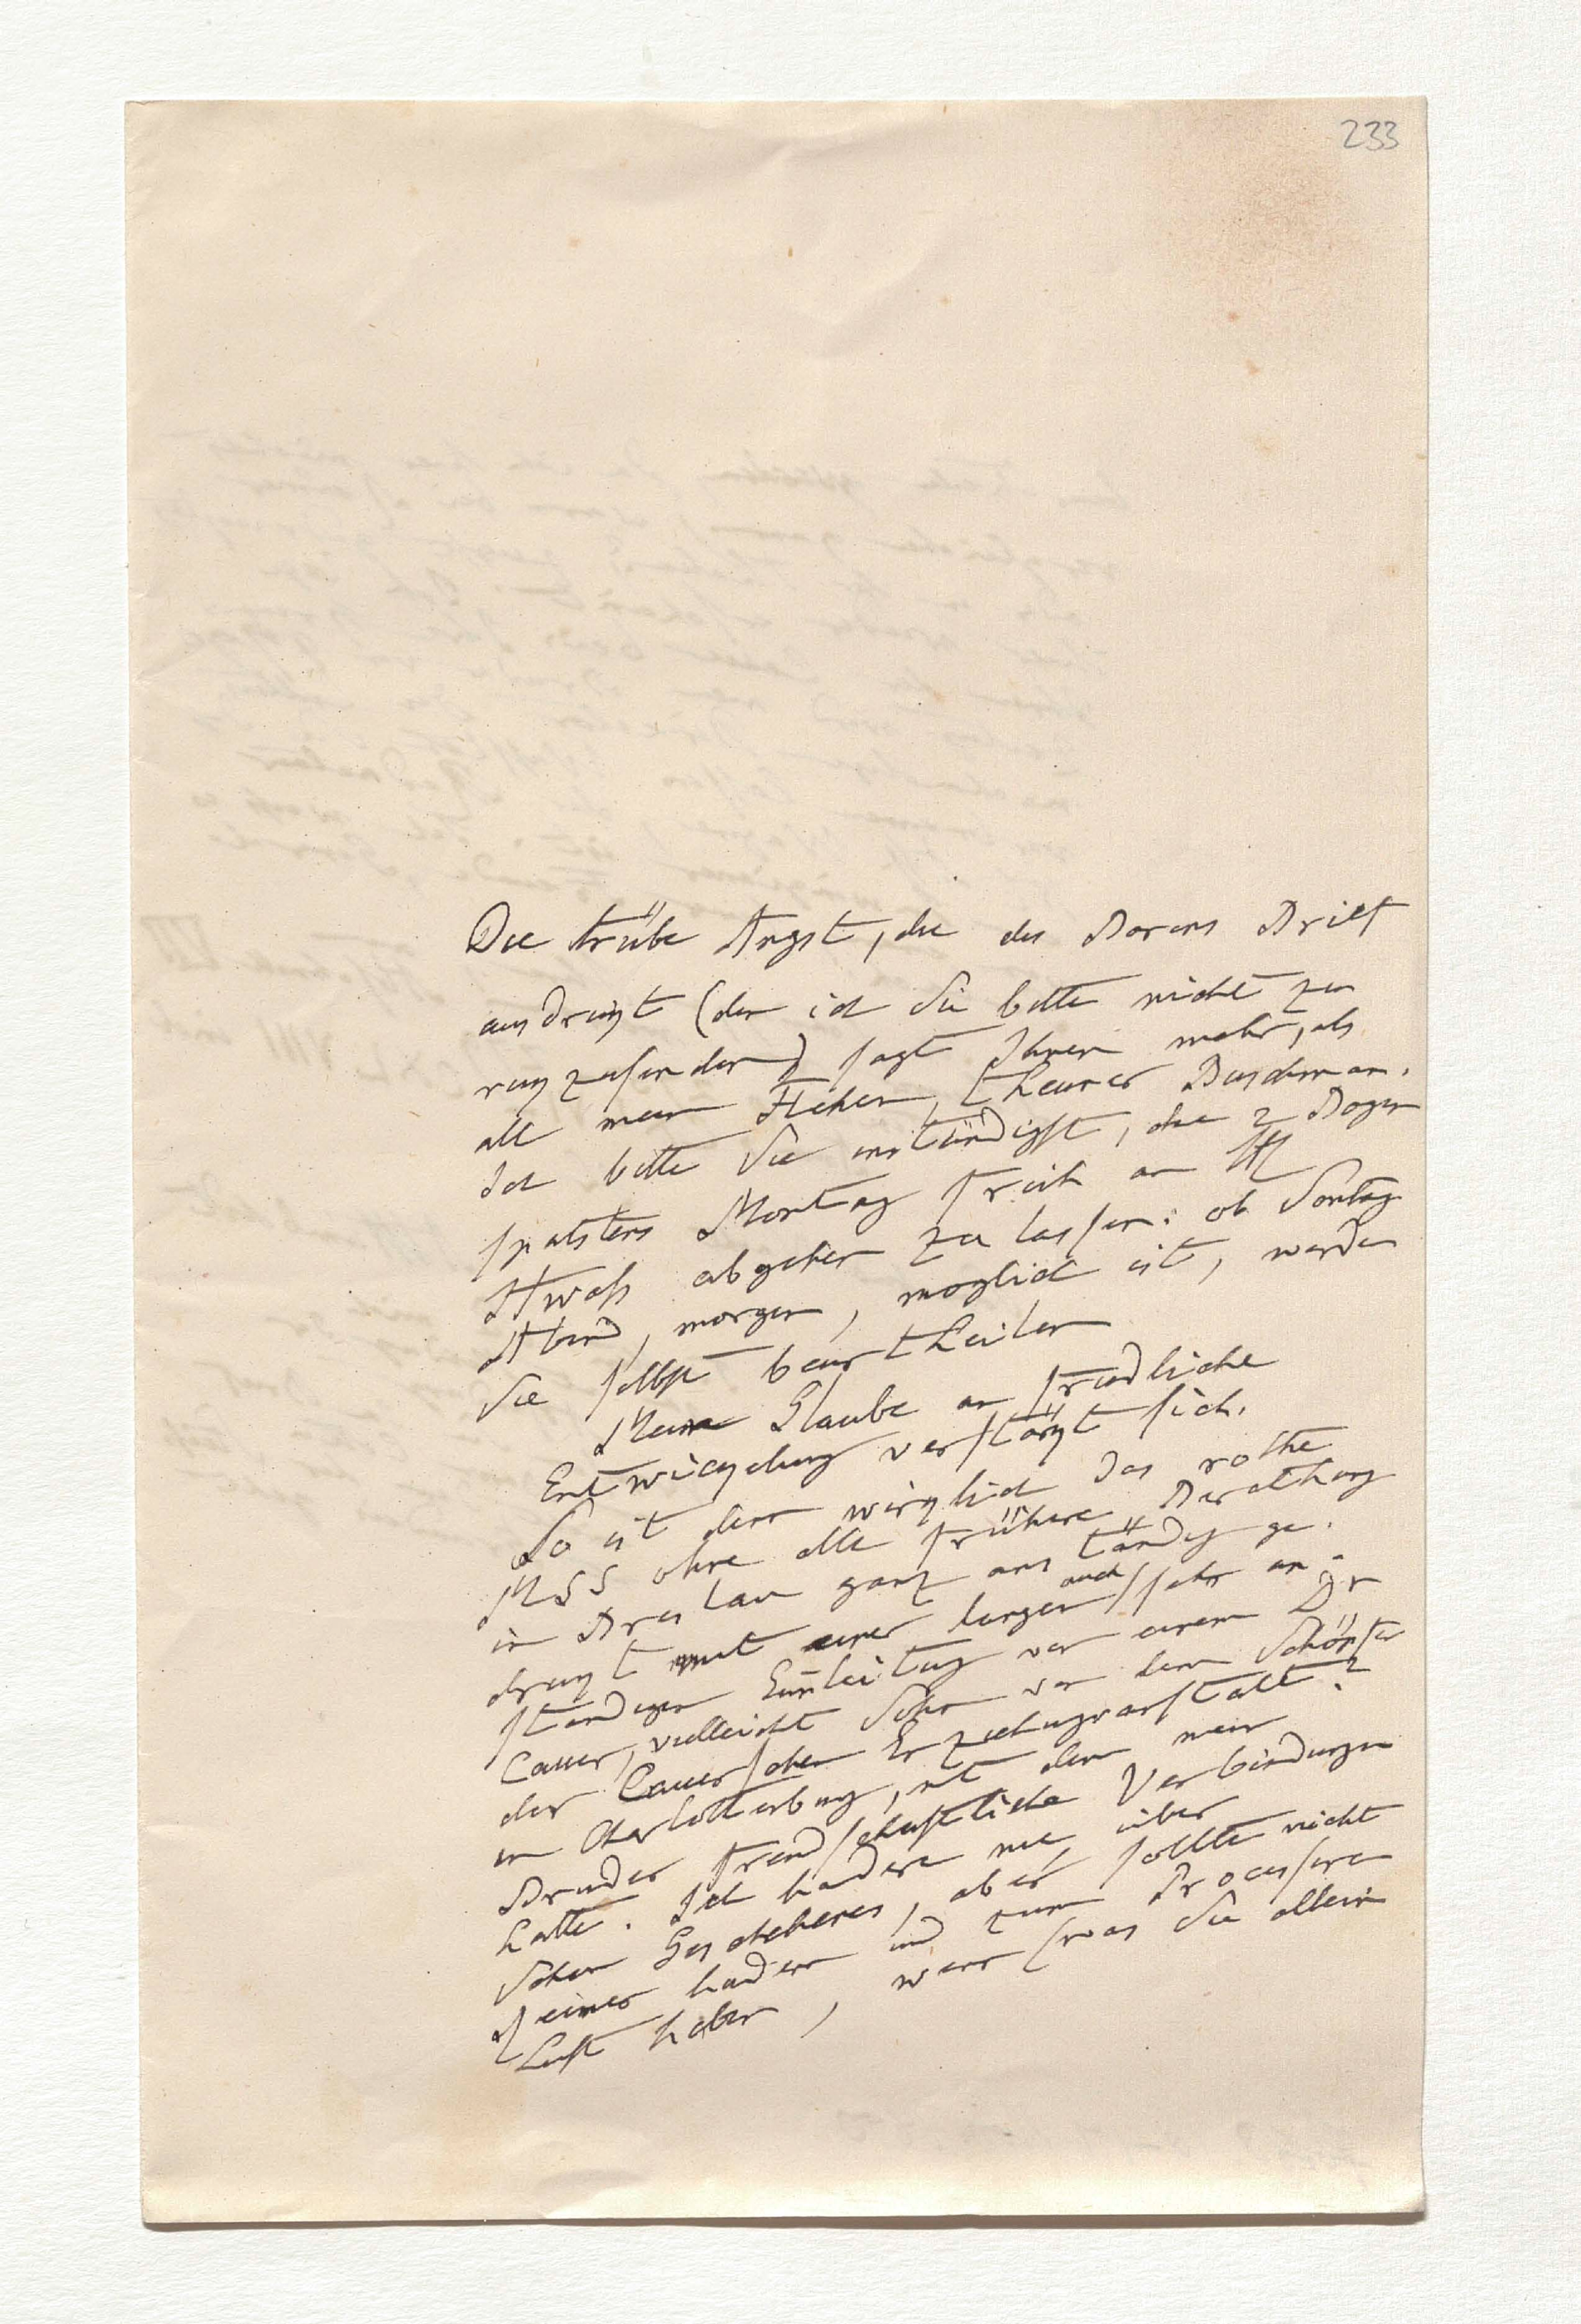 233
Die trübe Angst, die des Barons Brief
ausdrückt (den ich Sie bitte nicht zu
rückzusenden) sagt Ihnen mehr, als
all mein Flehen, theurer Buschman.
Ich bitte Sie instündigst, die 2 Bogen
spatstens Montag früh an
abgehen zu lassen: ob Sontag
Abend, morgen, moglich ist, werden
Sie selbst beurtheilen
Mein Glaube an friedliche
Entwickelung verstärkt sich.
So ist denn wirklich das rothe
MSS ohne alle frühere Berathung
in Breslau ganz anständig ge-
drukt mit einer langen auch sehr an-
standigen Einleitung von einem Dr
Cauer, vielleicht Sohn von dem Schöpfer
der Cauerschen Erziehungsanstalt?
in Charlottenburg, mit dem mein
Bruder freundschaftliche Verbindungen
hatte. Ich hadere nie über
schon Geschehenes, aber sollte nicht
Feiner hadern und zum Processiren
Lust haben, wenn (was Sie allein